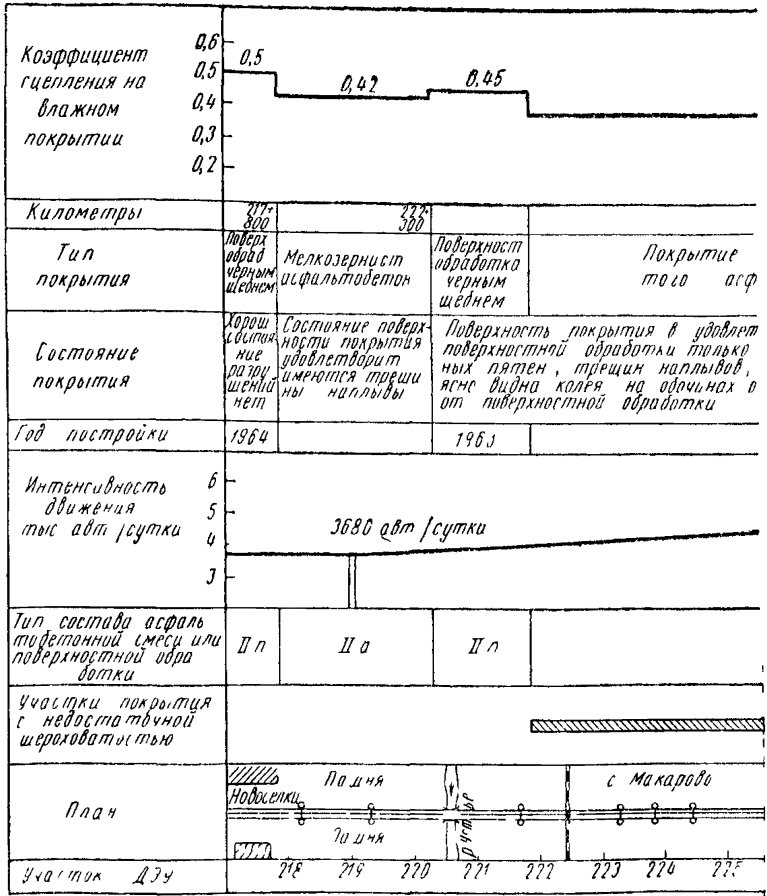 Коэффициент
сцепления на
влажном
покрытии
0,6
0,5
0,4
0,3
0,2
0,5
0,42
0,45
Километры
217+
800
222+
300
Тип
покрытия
Поверх
обраб
черным
щебнем
Мелкозернист
асфальтобетон
Поверхност
обработка
черным
щебнем
Покрытие
того асф
Состояние
покрытия
Хорош
состоя
ние
разру
шений
нет
Состояние поверх-
ности покрытия
удовлетворит
имеются трещи
ны наплывы
Поверхность покрытия в удовлет
поверхностной обработки только
ных пятен, трещин наплывов,
ясно видна колея на обочинах о
от поверхностной обработки
Год постройки
1964
Интенсивность
движения
тыс авт/сутки
6
5
4
3
3680 авт/сутки
Тип состава асфаль
тобетонной смеси или
поверхностной обра
ботки
II п
II а
II п
Участки покрытия
с недостаточной
шероховатостью
План
Новоселки
Пашня
Пашня
с Макарово
Участок ДЭУ
218
219
220
221
222
223
224
225